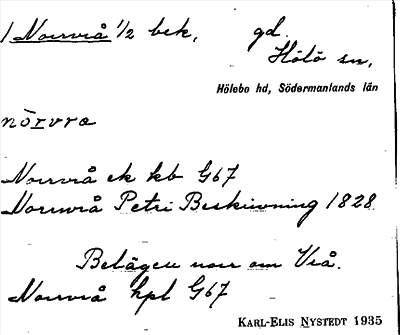 / Norrvrå 1/2 bek, gd.
Hölö sn,
Hölebo hd, Södermanlands län
nörvra
Norrvrå ek kb G67
Norrvrå Petri Beskrivning 1828
Belägen norr om Vrå.
Norrvrå hpl G67
KARL-ELIS NYSTEDT 1935